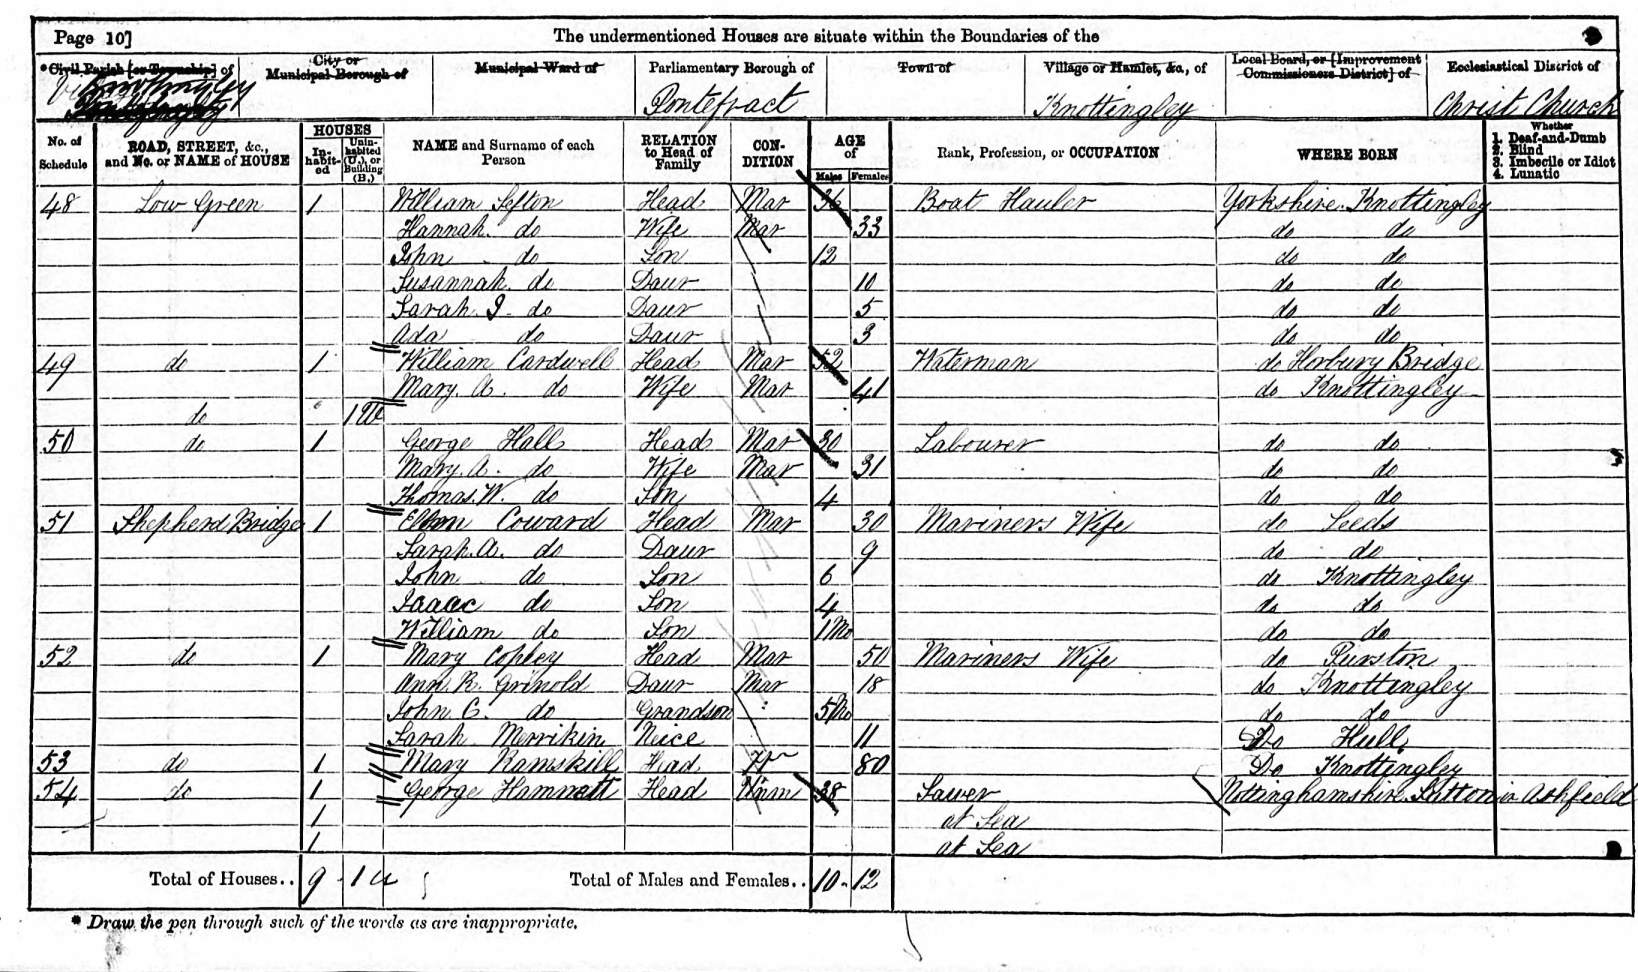 Page 10]
The undermentioned Houses are situate within the Boundaries of the
*Civil Parish [or Township] of
City or Municipal Borough of
Municipal Ward of
Parliamentary Borough of
Town of
Village or Hamlet, &c., of
Local Board, or [Improvement Commissioners District] of
Ecclesiastical District of
Knottingley
Pontefract
Knottingley
Christ Church
No. of Schedule
ROAD, STREET, &c., and No. or NAME of HOUSE
HOUSES
In-habit-ed
Unin-habited (U.), or Building (B.)
NAME and Surname of each Person
RELATION to Head of Family
CON-DITION
AGE of
Males
Females
Rank, Profession, or OCCUPATION
WHERE BORN
Whether
1. Deaf-and-Dumb
2. Blind
3. Imbecile or Idiot
4. Lunatic
48 Low Green 1 William Sefton Head Mar 36 Boat Hauler Yorkshire Knottingley
Hannah do Wife Mar 33 do do
John do Son 12 do do
Susannah do Daur 10 do do
Sarah J do Daur 5 do do
Ada do Daur 3 do do
49 do 1 William Cardwell Head Mar 52 Waterman do Horbury Bridge
Mary A. do Wife Mar 41 do Knottingley
do 1 U
50 do 1 George Hall Head Mar 30 Labourer do do
Mary A. do Wife Mar 31 do do
Thomas W. do Son 4 do do
51 Shepherd Bridge 1 Ellen Coward Head Mar 30 Mariners Wife do Leeds
Sarah A. do Daur 9 do do
John do Son 6 do Knottingley
Isaac do Son 4 do do
William do Son 1 Mo do do
52 do 1 Mary Copley Head Mar 50 Mariners Wife do Purston
Ann R. Grinold Daur Mar 18 do Knottingley
John C. do Grandson 5 Mo do do
Sarah Merrikin Neice 11 Do Hull
53 do 1 Mary Ramskill Head 80 Do Knottingley
54 do 1 George Hamnett Head Unm 38 Sawer Nottinghamshire Sutton in Ashfield
1 at Sea
1 at Sea
Total of Houses.. 9 1 u
Total of Males and Females.. 10 12
* Draw the pen through such of the words as are inappropriate.